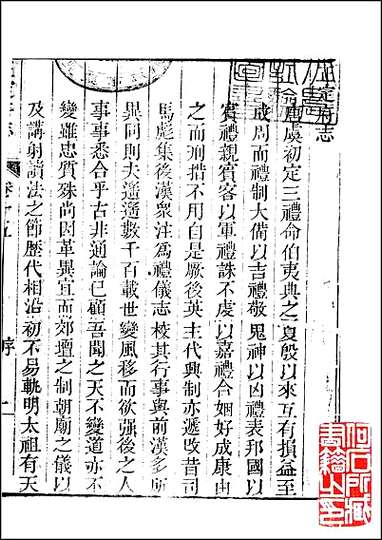 定府志
虞初定三禮命伯夷典之夏殷以來互有損益至
成周而禮制大備以吉禮敬鬼神以凶禮表邦國以
賓禮親賓客以軍禮誅不虔以嘉禮合姻好成康由
之而刑措不用自是厥後英主代興制亦遞改昔司
馬彪集後漢眾注為禮儀志校其行事與前漢多所
異同則夫遥遥數千百載世變風移而欲強後之人
事事悉合乎古非通論已顧吾聞之天不變道亦不
變雖忠質殊尚因革異宜而郊壇之制朝廟之儀以
及講射讀法之節歷代相沿初不易軌明太祖有天
卷十五
序
一
何石所藏書籍之印